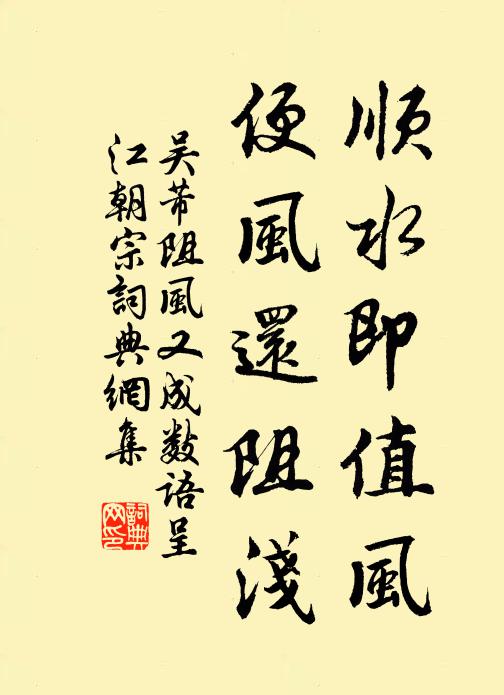 順水即值風
便風還阻淺
吴芾阻風又成数语呈
江朝宗詞典網集
詞典網印